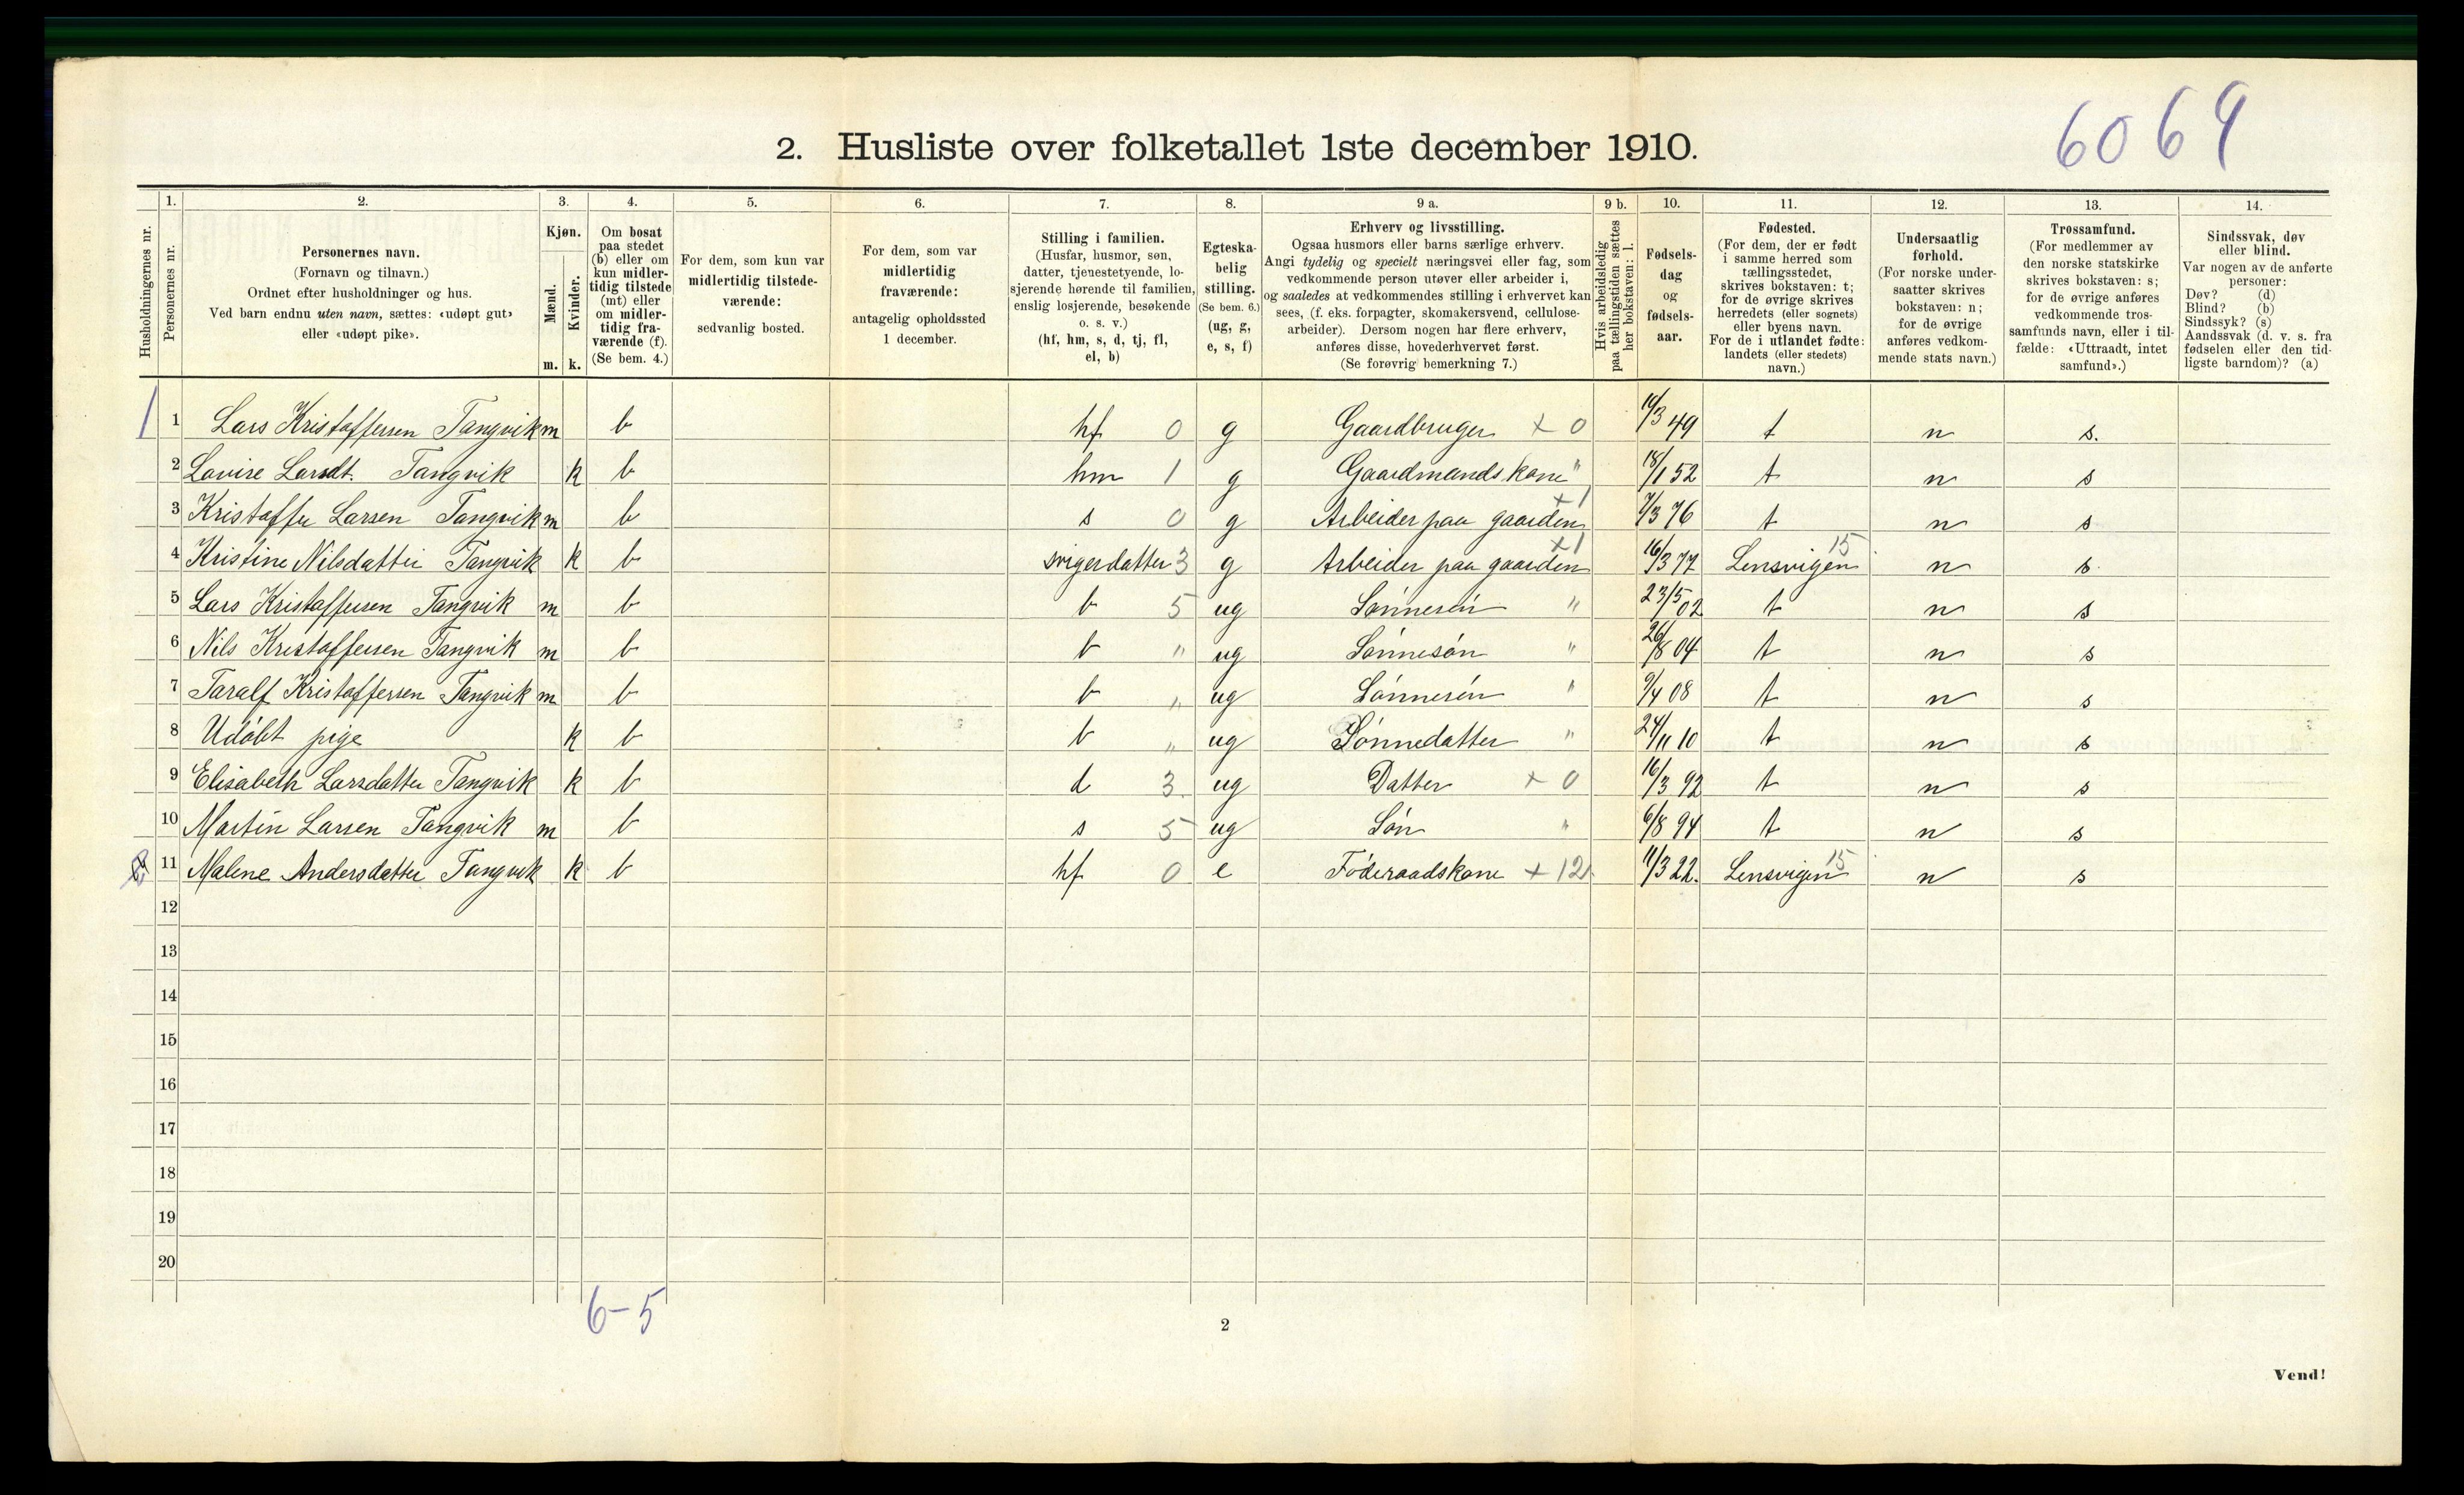 6069
2. Husliste over folketallet 1ste december 1910.
Husholdningernes nr.
1. Personernes nr.
2. Personernes navn.
(Fornavn og tilnavn.)
Ordnet efter husholdninger og hus.
Ved barn endnu uten navn, sættes: «udøpt gut»
eller «udøpt pike».
3. Kjøn.
Mænd. m.
Kvinder. k.
4. Om bosat
paa stedet
(b) eller om
kun midler-
tidig tilstede
(mt) eller
om midler-
tidig fra-
værende (f).
(Se bem. 4.)
5. For dem, som kun var
midlertidig tilstede-
værende:
sedvanlig bosted.
6. For dem, som var
midlertidig
fraværende:
antagelig opholdssted
1 december.
7. Stilling i familien.
(Husfar, husmor, søn,
datter, tjenestetyende, lo-
sjerende hørende til familien,
enslig losjerende, besøkende
o. s. v.)
(hf, hm, s, d, tj, fl,
el, b)
8. Egteska-
belig
stilling.
(Se bem. 6.)
(ug, g,
e, s, f)
9 a. Erhverv og livsstilling.
Ogsaa husmors eller barns særlige erhverv.
Angi tydelig og specielt næringsvei eller fag, som
vedkommende person utøver eller arbeider i,
og saaledes at vedkommendes stilling i erhvervet kan
sees, (f. eks. forpagter, skomakersvend, cellulose-
arbeider). Dersom nogen har flere erhverv,
anføres disse, hovederhvervet først.
(Se forøvrig bemerkning 7.)
9 b. Hvis arbeidsledig
paa tællingstiden sættes
her bokstaven: l.
10. Fødsels-
dag
og
fødsels-
aar.
11. Fødested.
(For dem, der er født
i samme herred som
tællingsstedet,
skrives bokstaven: t;
for de øvrige skrives
herredets (eller sognets)
eller byens navn.
For de i utlandet fødte:
landets (eller stedets)
navn.)
12. Undersaatlig
forhold.
(For norske under-
saatter skrives
bokstaven: n;
for de øvrige
anføres vedkom-
mende stats navn.)
13. Trossamfund.
(For medlemmer av
den norske statskirke
skrives bokstaven: s;
for de øvrige anføres
vedkommende tros-
samfunds navn, eller i til-
fælde: «Uttraadt, intet
samfund».)
14. Sindssvak, døv
eller blind.
Var nogen av de anførte
personer:
Døv? (d)
Blind? (b)
Sindssyk? (s)
Aandssvak (d. v. s. fra
fødselen eller den tid-
ligste barndom)? (a)
1 1 Lars Kristaffersen Tangvik m b hf 0 g Gaardbruger + 0 49 t n s.
2 Lovise Larsdt. Tangvik k b hm 1 g Gaardmandskone " 18/1 52 t n s
3 Kristaffer Larsen Tangvik m b s 0 g Arbeider paa gaarden +1 7/3 76 t n s
4 Kristine Nilsdatter Tangvik k b svigerdatter 3 g Arbeider paa gaarden +1 16/3 77 Lensvigen 15 n s
5 Lars Kristaffersen Tangvik m b b 5 ug Sønnesøn " 23/5 02 t n s
6 Nils Kristaffersen Tangvik m b b " ug Sønnesøn " 26/8 04 t n s
7 Taralf Kristaffersen Tangvik m b b " ug Sønnesøn " 9/4 08 t n s
8 Udøbt pige k b b " ug Sønnedatter " 24/11 10 t n s
9 Elisabeth Larsdatter Tangvik k b d 3 ug Datter + 0 16/3 92 t n s
10 Martin Larsen Tangvik m b s 5 ug Søn " 6/8 94 t n s
11 Malene Andersdatter Tangvik k b hf 0 e Føderaadskone + 12 11/3 22. Lensvigen 15 n s
12
13
14
15
16
17
18
19
20
6-5
2
Vend!